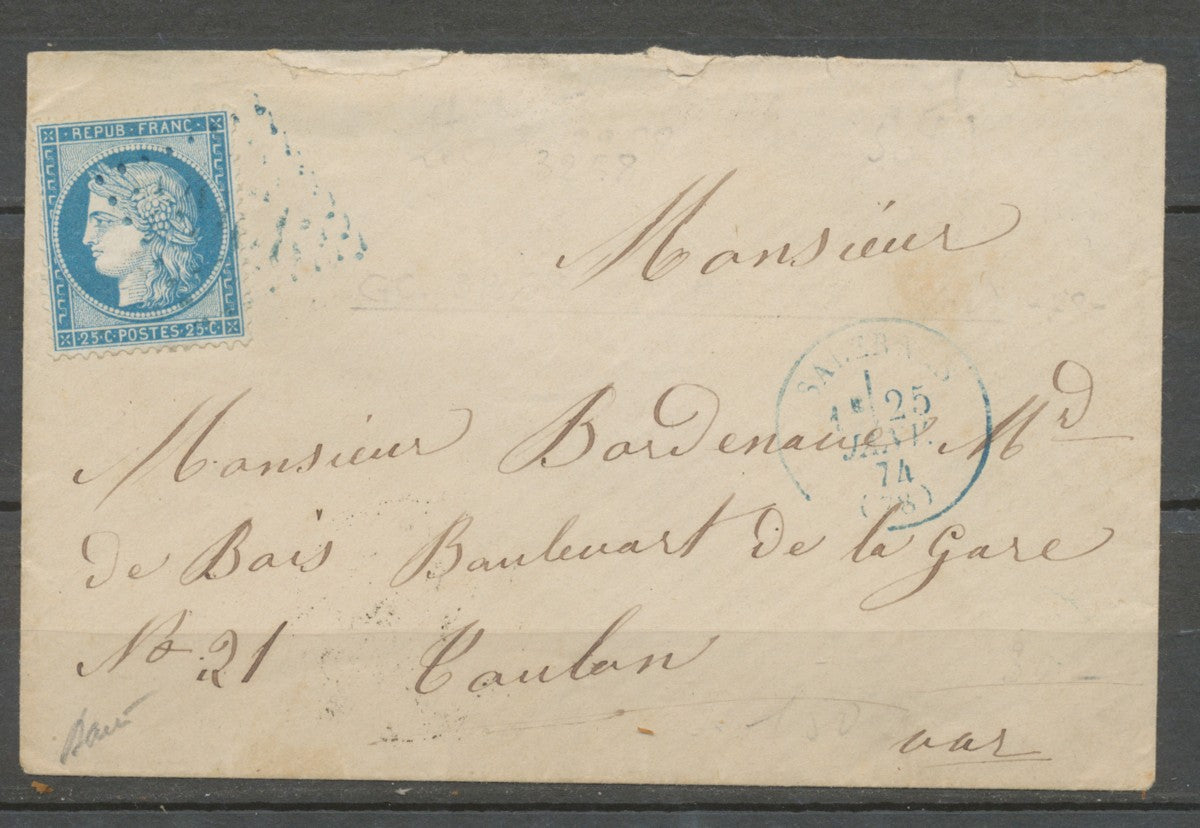 REPUB·FRANC
25·C·POSTES·25·C
Monsieur
25
JANV.
74
Monsieur Bordenave Md
de Bois Boulevart de la Gare
No 21 Toulon
var